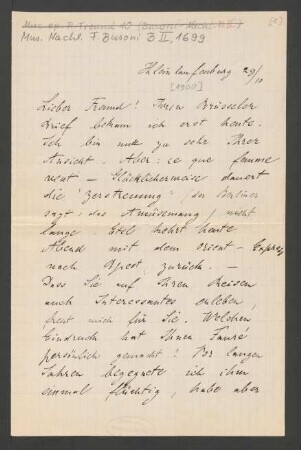 Mus. Nachl. F. Busoni B II, 1699
Kleinlaufenburg 29/10
[1900]
Lieber Freund! Ihren Brüsseler
Brief bekam ich erst heute.
Ich bin nur zu sehr Ihrer
Ansicht. Aber: ce que femme
veut – Glücklicherweise dauert
die "Zerstreuung" (der Berliner
sagt: das Amüsemang) nicht
lange. Etel kehrt heute
Abend mit dem Orient-Express
nach Bpest zurück. –
Dass Sie auf Ihren Reisen
auch Interessantes erleben,
freut mich für Sie. Welchen
Eindruck hat Ihnen Fauré
persönlich gemacht? Vor langen
Jahren begegnete ich ihm
einmal flüchtig, habe aber